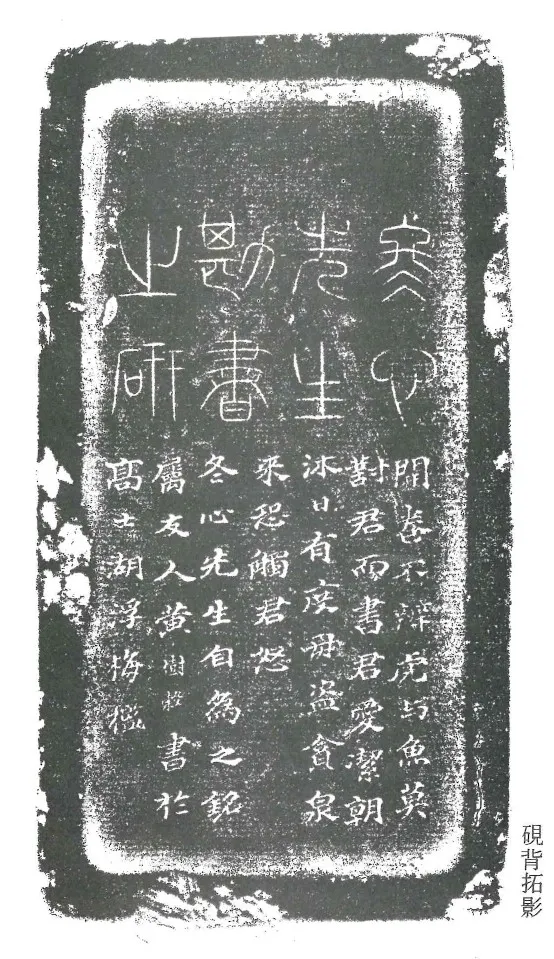 冬心
先生
勘書
之研
開卷不辨虎与魚莫
對君而書君愛潔朝
沐日有度毋盜貪泉
來恐觸君怒
冬心先生自為之銘
屬友人黃樹穀書於
高士胡浮梅檻
硯背拓影